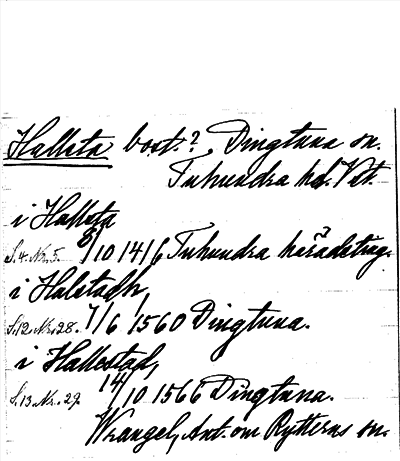 Hallsta bost.? Dingtuna sn.
Tuhundra hd. Vst.
i Hallsta
S.4.Nr.5. 8/10 1416 Tuhundra häradsting.
i Halstadh,
S.12.Nr.28. 7/6 1560 Dingtuna.
i Hallestad,
S.13.Nr.29. 14/10 1566 Dingtuna.
Wrangel, Ant. om Rytterns sn.